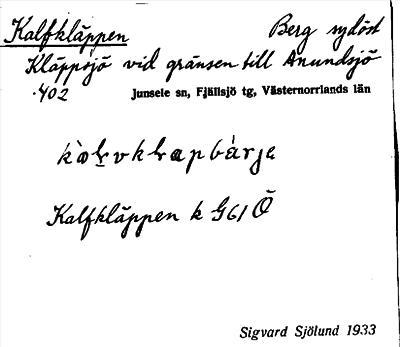 Kalfkläppen Berg sydöst
Kläppsjö vid gränsen till Anundsjö
.402 Junsele sn, Fjällsjö tg, Västernorrlands län
Kalfkläppen k G61 Ö
Sigvard Sjölund 1933